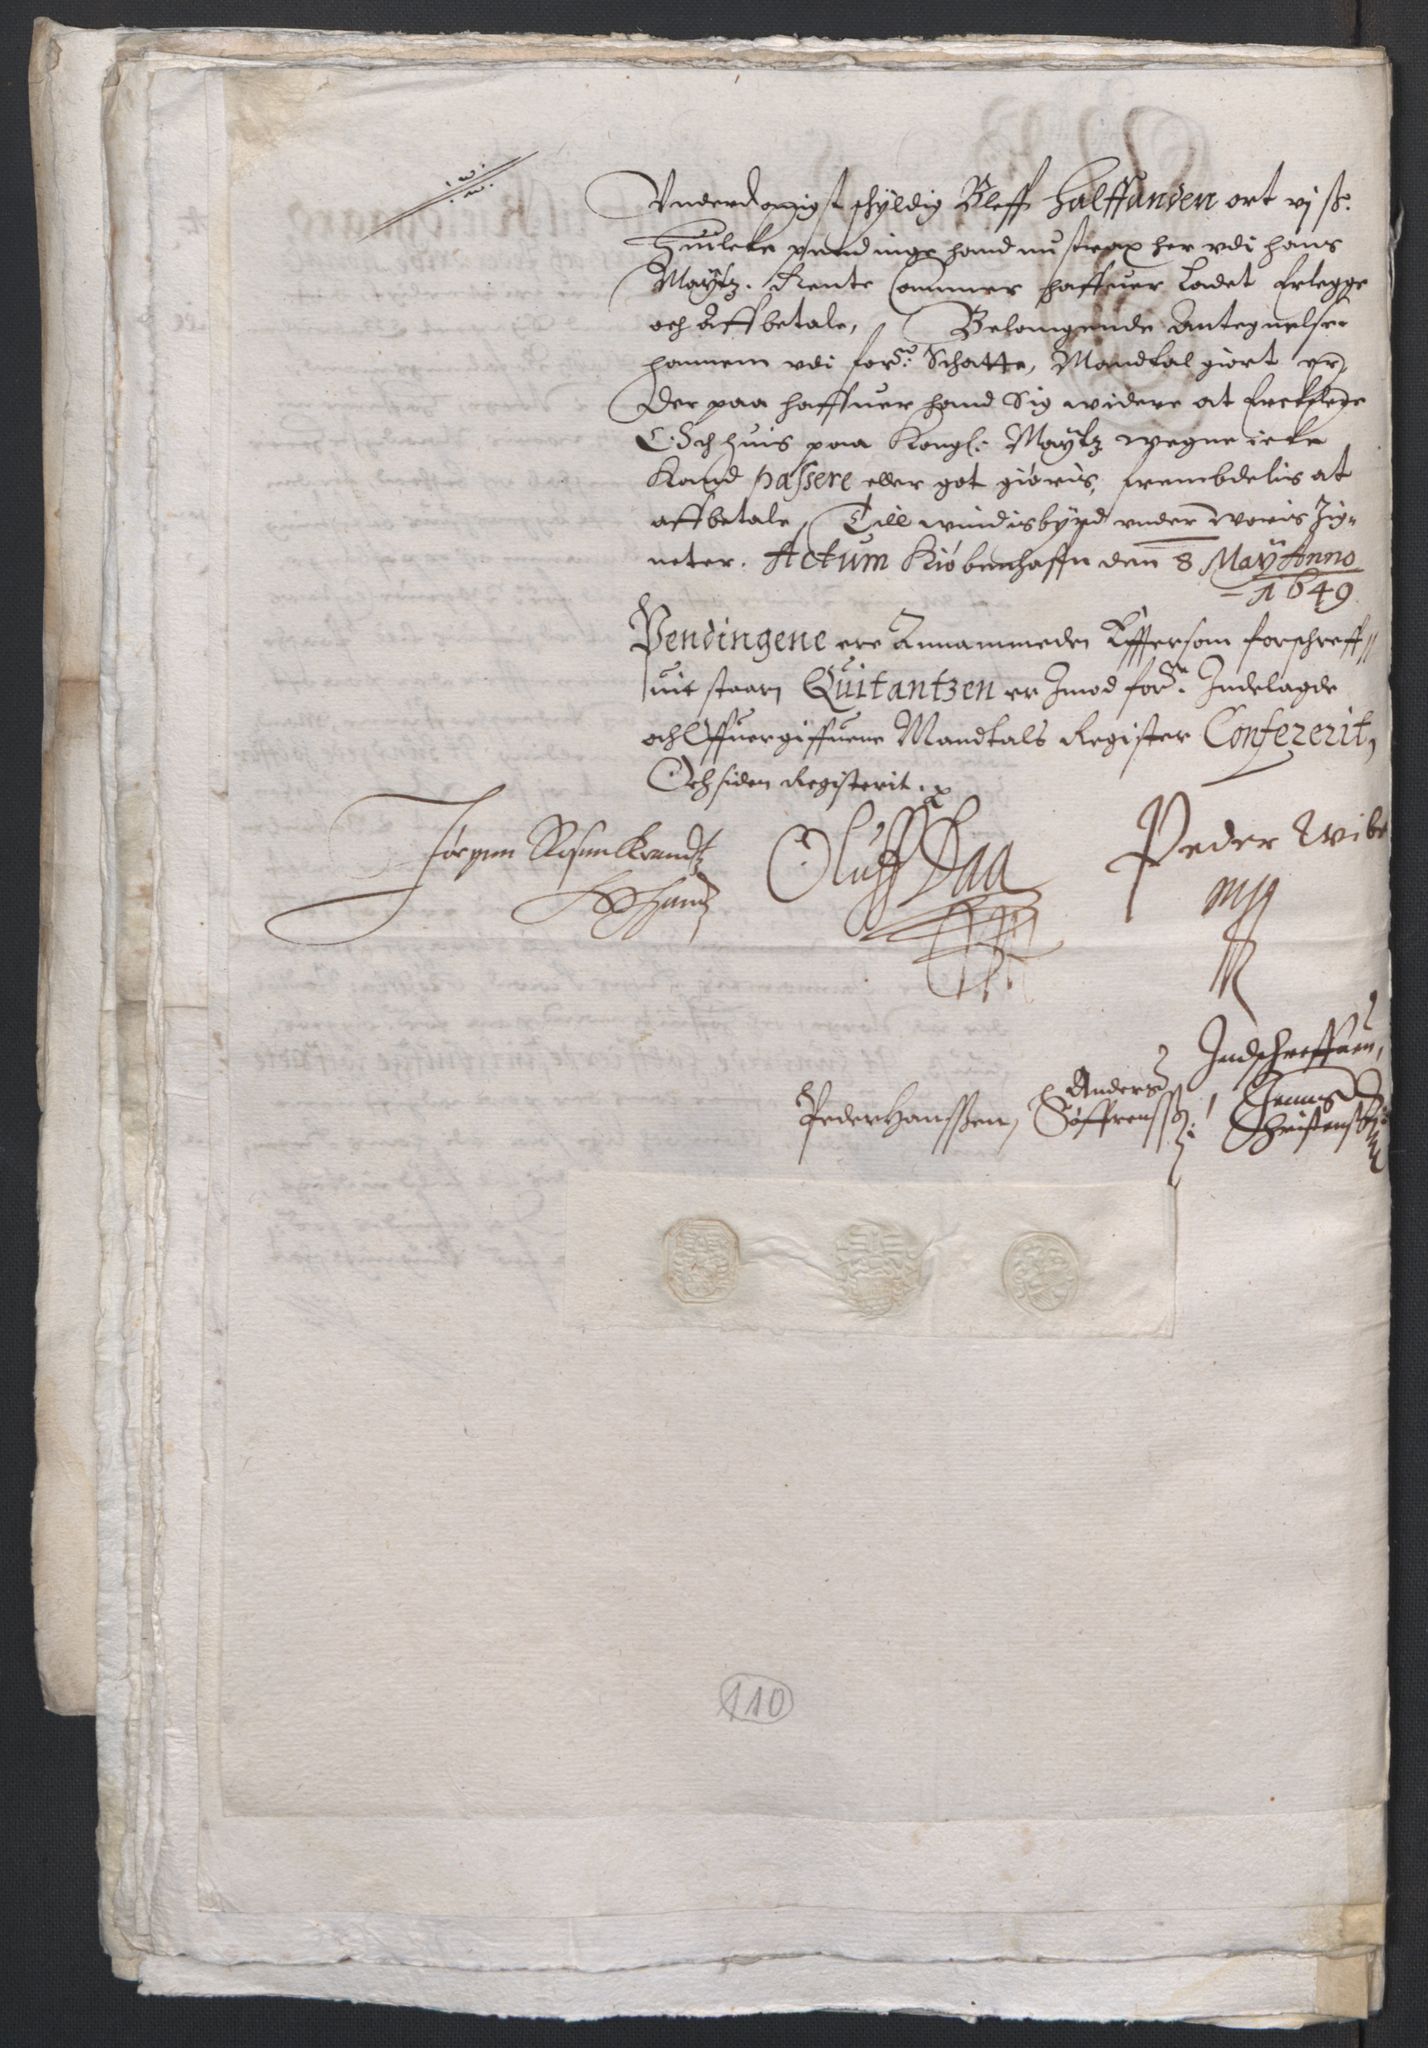 Underdanigst schyldig Bleff Halffanden ort vj ß.
Huilcke pendinge hand nu strax her vdi hans
Maytz. Rente Cammer haffuer Ladet Erlegge
och Affbetale, Belangende Antegnelser
hannem vdi fors: Schatte, Mandtal giort er,
Der paa haffuer hand Sig widere at Erklere
Och huis paa Kongl: Maytz wegne icke
Kand passere eller got giøris, frembdelis at
affbetale, Till windisbyrd under woris Zig=
neter. Actum Kiøbenhaffn den 8 May Anno
1649
Pendingene ere Annammede Effter som forschreff//
uit staar, Quitantzen er Imod fors: Indelagde
och Offuergiffuene Mandtals Register Confererit,
Och siden Registerit.
Jørgen Rosenkrandtz Oluff Daa Peder Wibe
E Hand mpp
Indschreffuen,
Peder Hanssen, Anders Søffrenss: Christenss
110